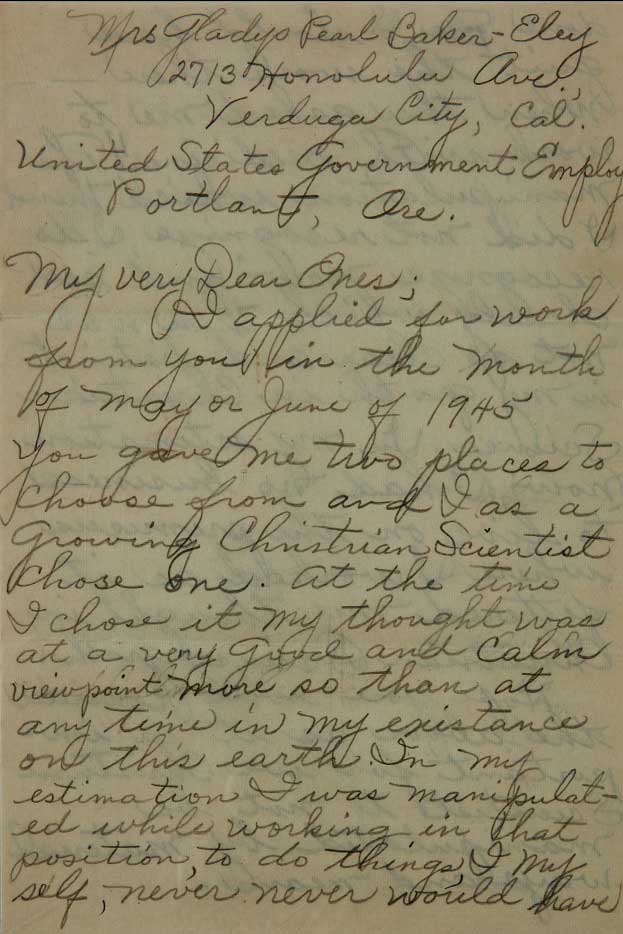 Mrs Gladys Pearl Baker-Eley
2713 Honolulu Ave.,
Verduga City, Cal.
United States Government Employ
Portlant, Ore.
My very Dear Ones;
I applied for work
from you in the month
of May or June of 1945
You gave me two places to
choose from and I as a
Growing Christian Scientist
chose one. At the time
I chose it my thought was
at a very Good and Calm
viewpoint more so than at
any time in my existance
on this earth. In my
estimation I was manipulat-
ed while working in that
position, to do things, I my
self, never never would have